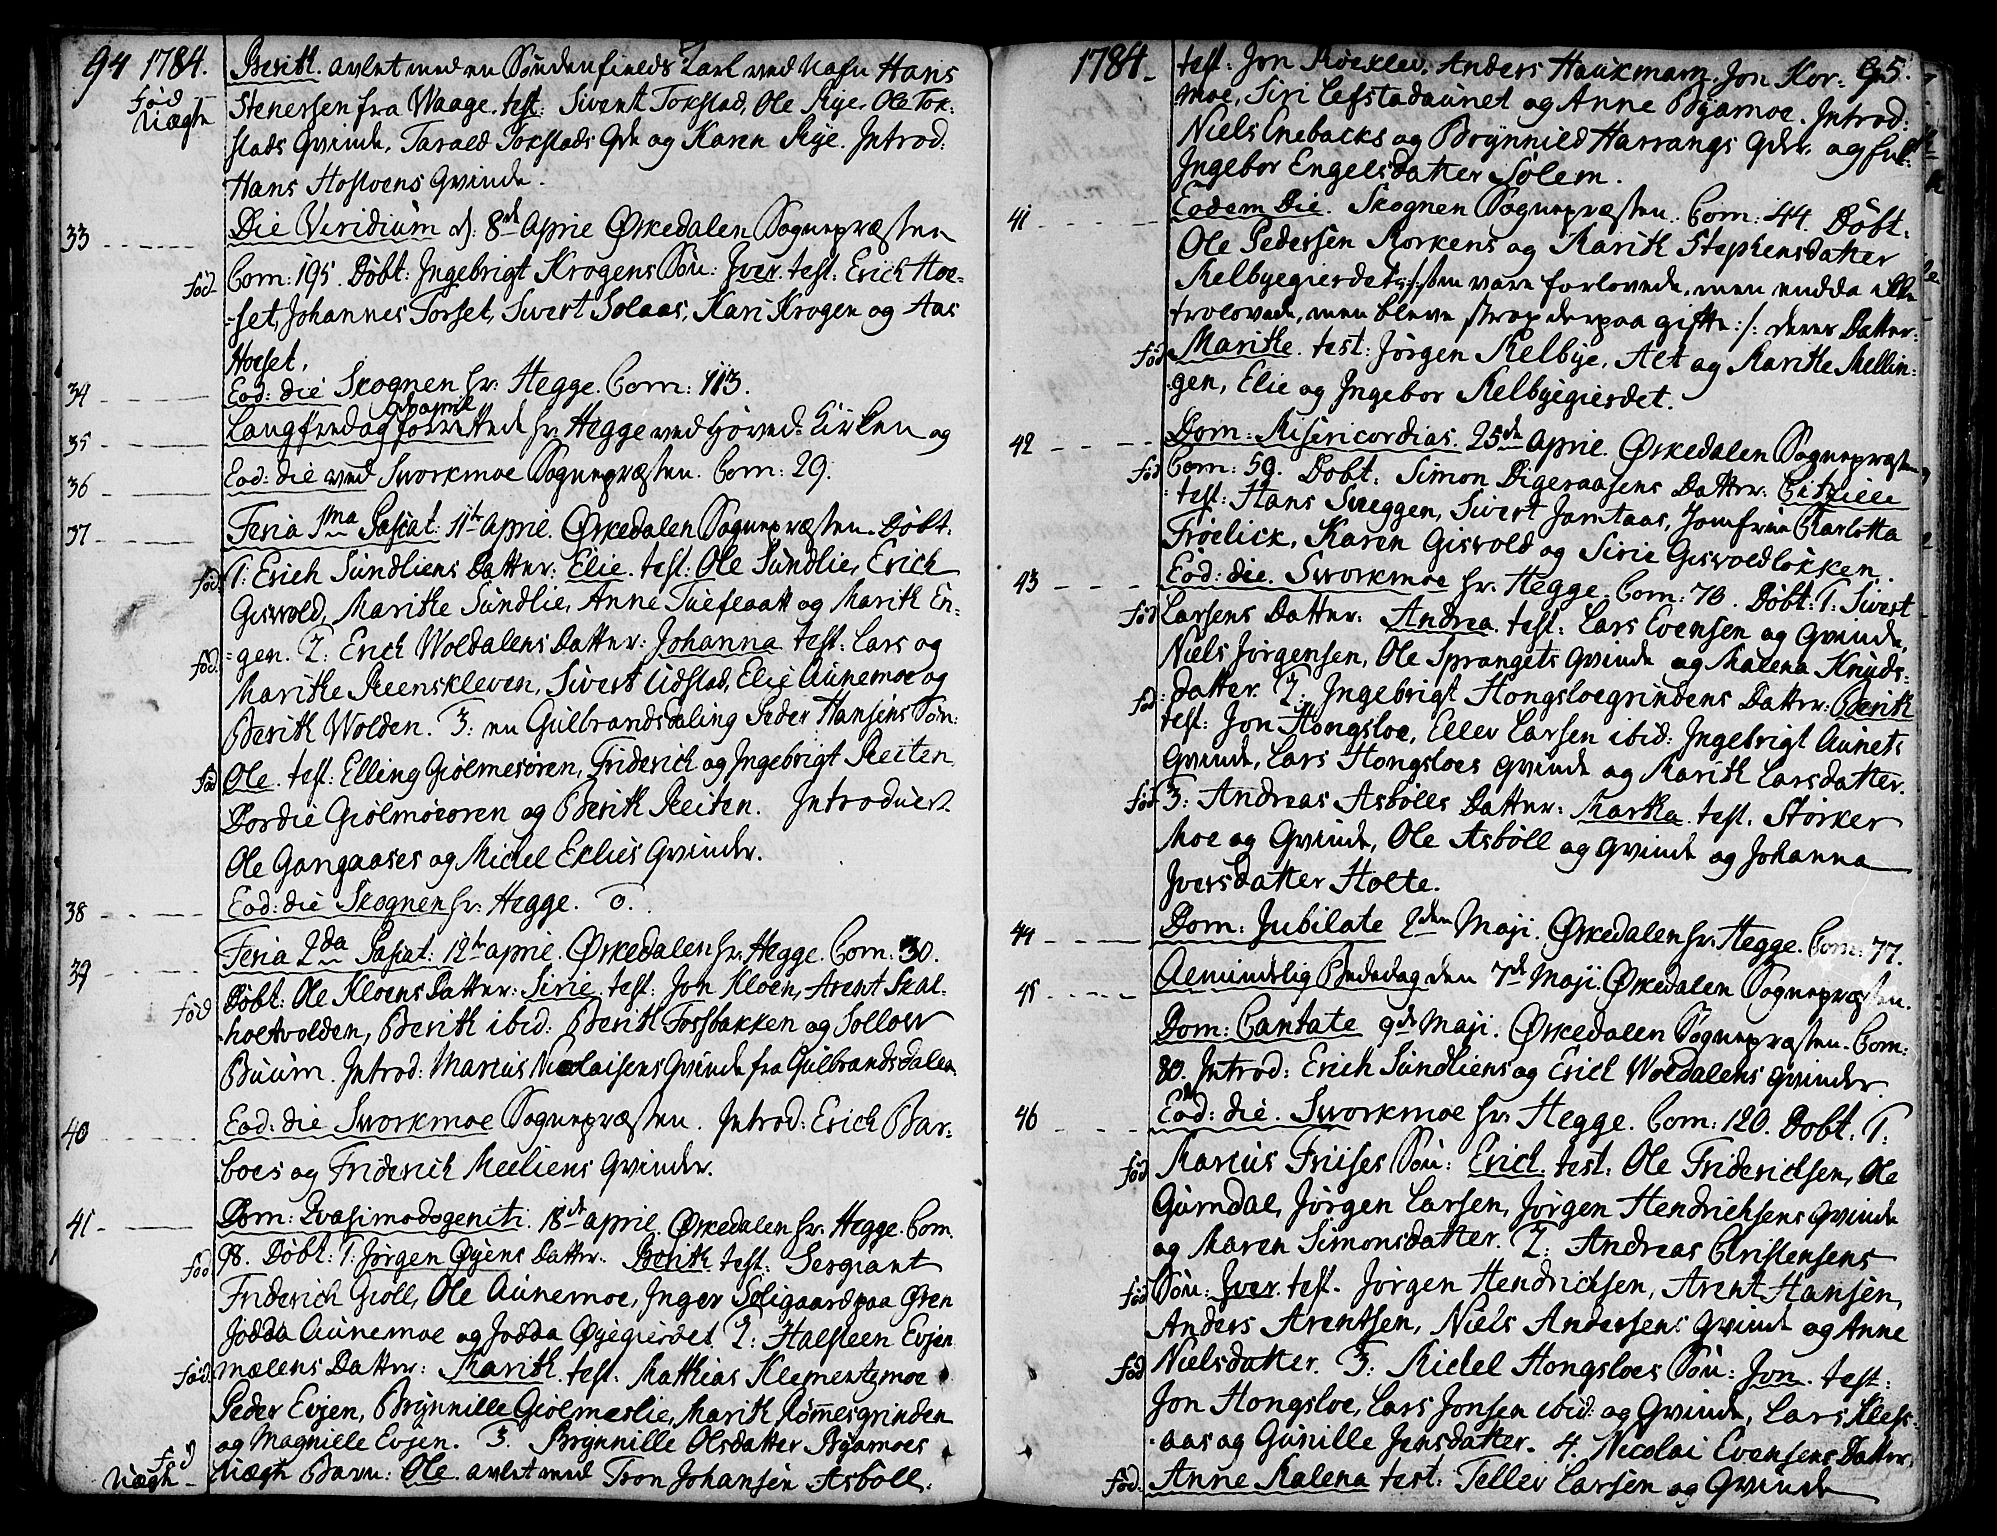 94 1784. Berith. avlet med en Søndenfields Karl ved Nafn Hans
Fød
Uægte Stenersen fra Waage. test: Sivert Tokstad, Ole Rye, Ole Tok:
stads Qvinde, Tarald Tokstads Qde og Karen Rye. Introd:
Hans Hosloens Qvinde.
33 Die Viridium d. 8de Aprie Ørkedalen Sognepræsten
Fød Com: 195. Døbt: Ingebrigt Krogens Søn: Iver. test: Erich Hoe-
-set, Johannes Forset, Sivert Solaas, Kari Krogen og Aas
Hoeset.
34 Eod: die Skognen hr. Hegge. Com: 113.
35 Langfredag forrettede hr. Hegge ved Hoved-Kirken og
36 Eod: die ved Svorkmoe Sognepræsten. Com: 29.
37 Feria 1ma Pascat: 11te Aprie. Ørkedalen Sognepræsten. Døbt:
Fød 1: Erich Sundliens Datter: Elie. test: Ole Sundlie, Erich
Gisvold, Marithe Sundlie, Anne Tuefloatt og Marith En-
Fød -gen. 2: Erich Woldalens Datter: Johanna test: Lars og
Marithe Reenskleven, Sivert Udstad, Elie Aunemoe og
Berith Wolden. 3: en Gulbrandsdaling Peder Hansens Søn:
Fød Ole. test: Elling Giølmesøren, Friderich og Ingebrigt Reiten
Dordie Giølmøeoren og Berith Reiten. Introducert
Ole Gangaases og Michel Eclies Qvinder.
38 Eod: die Skognen hr. Hegge. 0.
39 Feria 2da Pascat: 12te Aprie. Ørkedalen hr. Hegge. Com: 30.
Fød Døbt: Ole Kloens Datter: Sirie. test: Jon Kloen, Arent Skal-
-hoelvolden, Berith ibid: Berith Fossbakken og Sollow
Buum. Introd: Marcus Nicolaisens Qvinde fra Gulbrandsdalen
40 Eod: die Svorkmoe Sognepræsten. Introd: Erich Bar-
boes og Friderich Meeliens Qvinder.
41 Dom: Qvasimodogeniti. 18de April. Ørkedalen hr. Hegge. Com
Fød 98. Døbt: 1. Jørgen Øyens Datter: Berith. test: Sergiant
Friderich Gioll, Ole Aunemoe, Inger Soligaard paa Øren
Jodda Aunemoe og Jodda Øyegierdet. 2: Halsteen Evjen
Fød mælens Datter: Marith. test: Mathias Klementzmoe
Peder Evjen, Brynnille Giølmeslie, Marith Rømmesgrinden
og Magnille Evjen. 3. Brynnille Olsdatter Byamoes
Fød
Uægte Uægte Barn: Ole. avlet med Tron Johansen Asbøll.
1784. test: Jon Røeklev. Anders Haukmarn. Jon Kor= 95.
moe, Siri Lefstadaunet og Anne Byamoe. Introd:
Niels Enebacks og Brynnild Harrangs Qdr. og
Ingebor Engelsdatter Solem.
41 Eodem Die. Skognen Sognepræsten. Com: 44. Døbt:
Ole Pedersen Korkens og Marith Stephensdatter
Kelbyegierdet /: som vare forlovede, men endda ikke
trolovede, men bleve strax derpaa gifte :/ deres Datter:
Fød Marithe. test: Jørgen Kelbye, Alt og Marithe Mellin-
-gen, Elie og Ingebor Kelbyegierdet.
42 Dom: Misericordias. 25de Aprie. Ørkedalen Sognepræsten
Fød Com: 59. Døbt: Simon Digeraasens Datter: Citzilie
test: Hans Sneggen, Sivert Jamtaas, Jomfrue Charlotta
Frøelick, Karen Gisvold og Sirie Gisvoldløkken.
43 Eod: die. Svorkmoe hr. Hegge. Com: 70. Døbt: 1: Sivert
Fød Larsens Datter: Andrea. test: Lars Evensen og Qvinde,
Niels Jørgensen, Ole Sprangets Qvinde og Malena Knuds-
Fød -datter. 2: Ingebrigt Hongsloegrindens Datter: Berith
test: Jon Hongsloe, Ellev Larsen ibid: Ingebrigt Aunets
Qvinde, Lars Hongsloes Qvinde og Marith Larsdatter.
Fød 3: Andreas Asbølls Datter: Martha. test. Størker
Moe og Qvinde, Ole Asbøll og Qvinde og Johanna
Iversdatter Holte.
44 Dom: Jubilate 2den Maji. Ørkedalen hr. Hegge. Com: 77.
45 Almindelig Bededag den 7de Maji. Ørkedalen Sognepræsten.
Dom: Cantate 9de Maji. Ørkedalen Sognepræsten. Com:
80. Introd: Erich Sundliens og Erich Woldalens Qvinder
46 Eod: die. Svorkmoe hr. Hegge. Com: 120. Døbt. 1:
Fød Marcus Friises Søn: Erich. test: Ole Friderichsen, Ole
Gumdal, Jørgen Larsen, Jørgen Hendrichsens Qvinde
og Maren Simonsdatter. 2: Andreas Christensens
Fød Søn: Iver. test. Jørgen Hendrichsen, Arent Hansen,
Anders Arentsen, Niels Andersens Qvinde og Anne
Fød Nielsdatter. 3: Michel Hongsloes Søn: Jon. test:
Jon Hongsloe, Lars Jonsen ibid: og Qvinde, Lars Kleff-
-aas og Gunille Jensdatter. 4. Nicolai Evensens Datter,
Fød Anne Malena test: Tellev Larsen og Qvinde